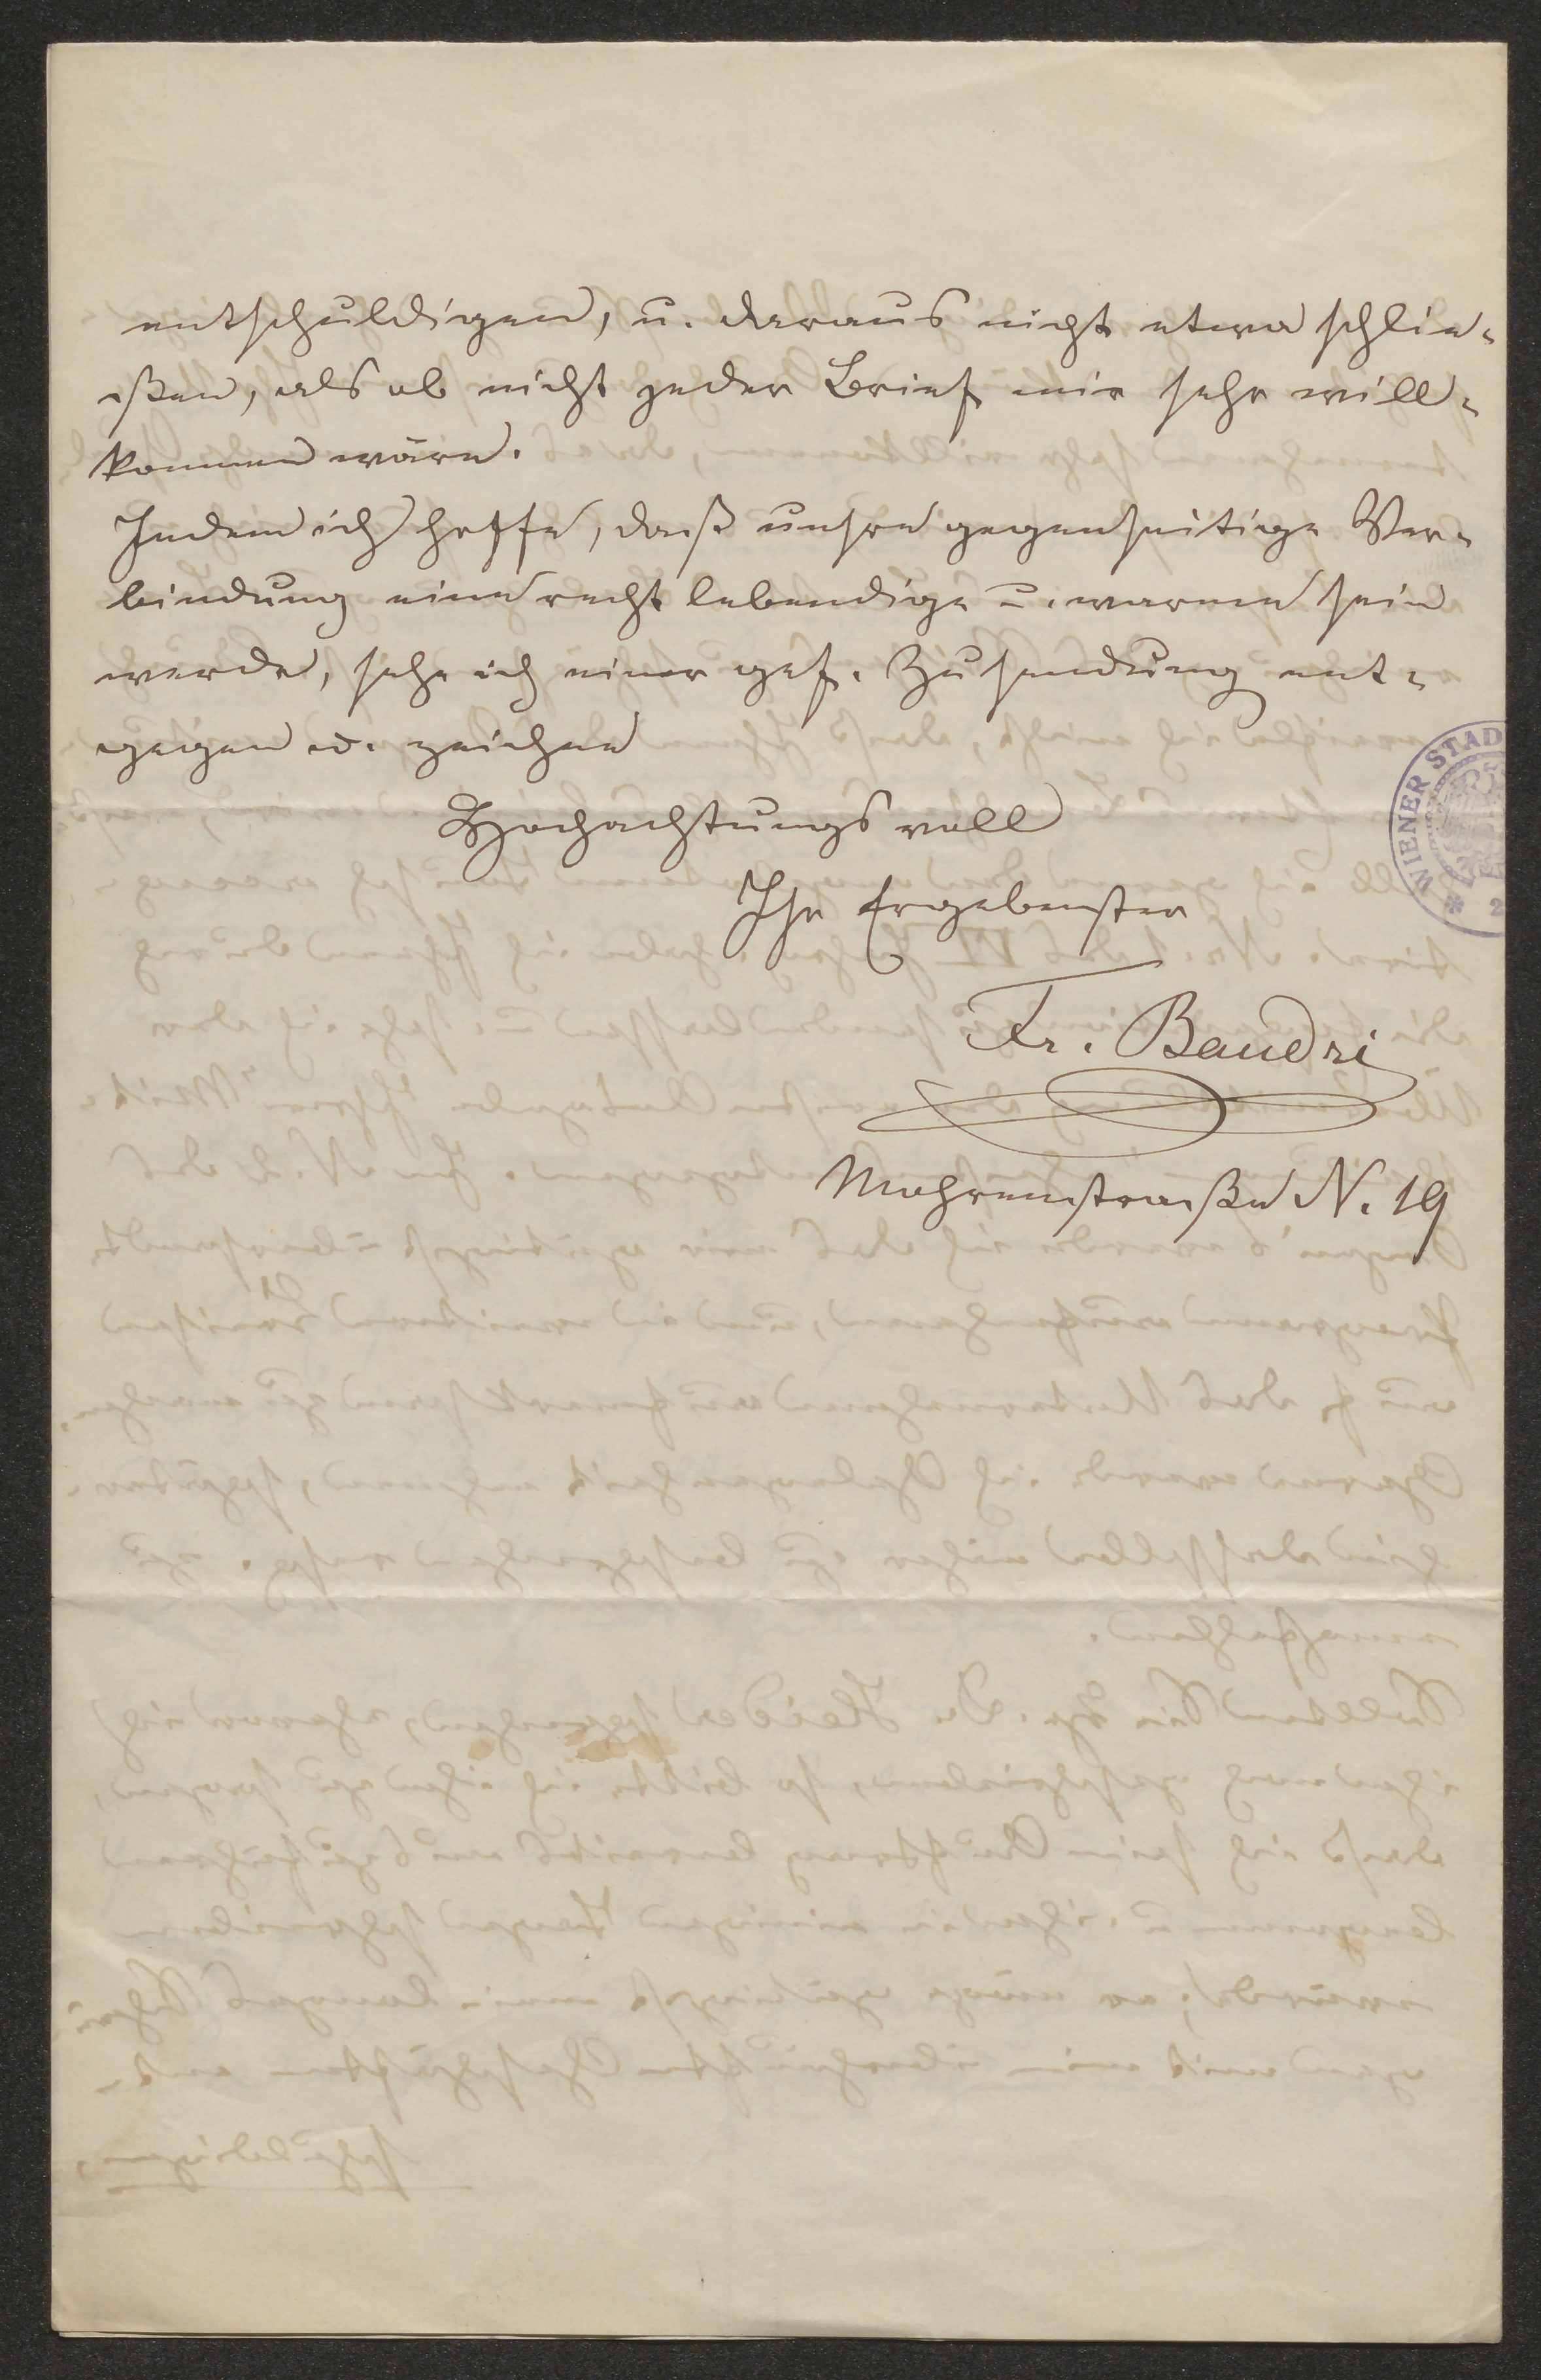 entschuldigen, u. daraus nicht etwa schlie-
ßen, als ob nicht jeder Brief mir sehr will-
kommen wäre.
Indem ich hoffe, daß unsre gegenseitige Ver-
bindung eine recht lebendige u. warme sein
werde, sehe ich einer gef. Zusendung ent-
gegen u. zeichne
Hochachtungsvoll
Ihr Ergebenster
Fr. Baudri
Mohrenstraße N. 19
WIENER STAD
* 2